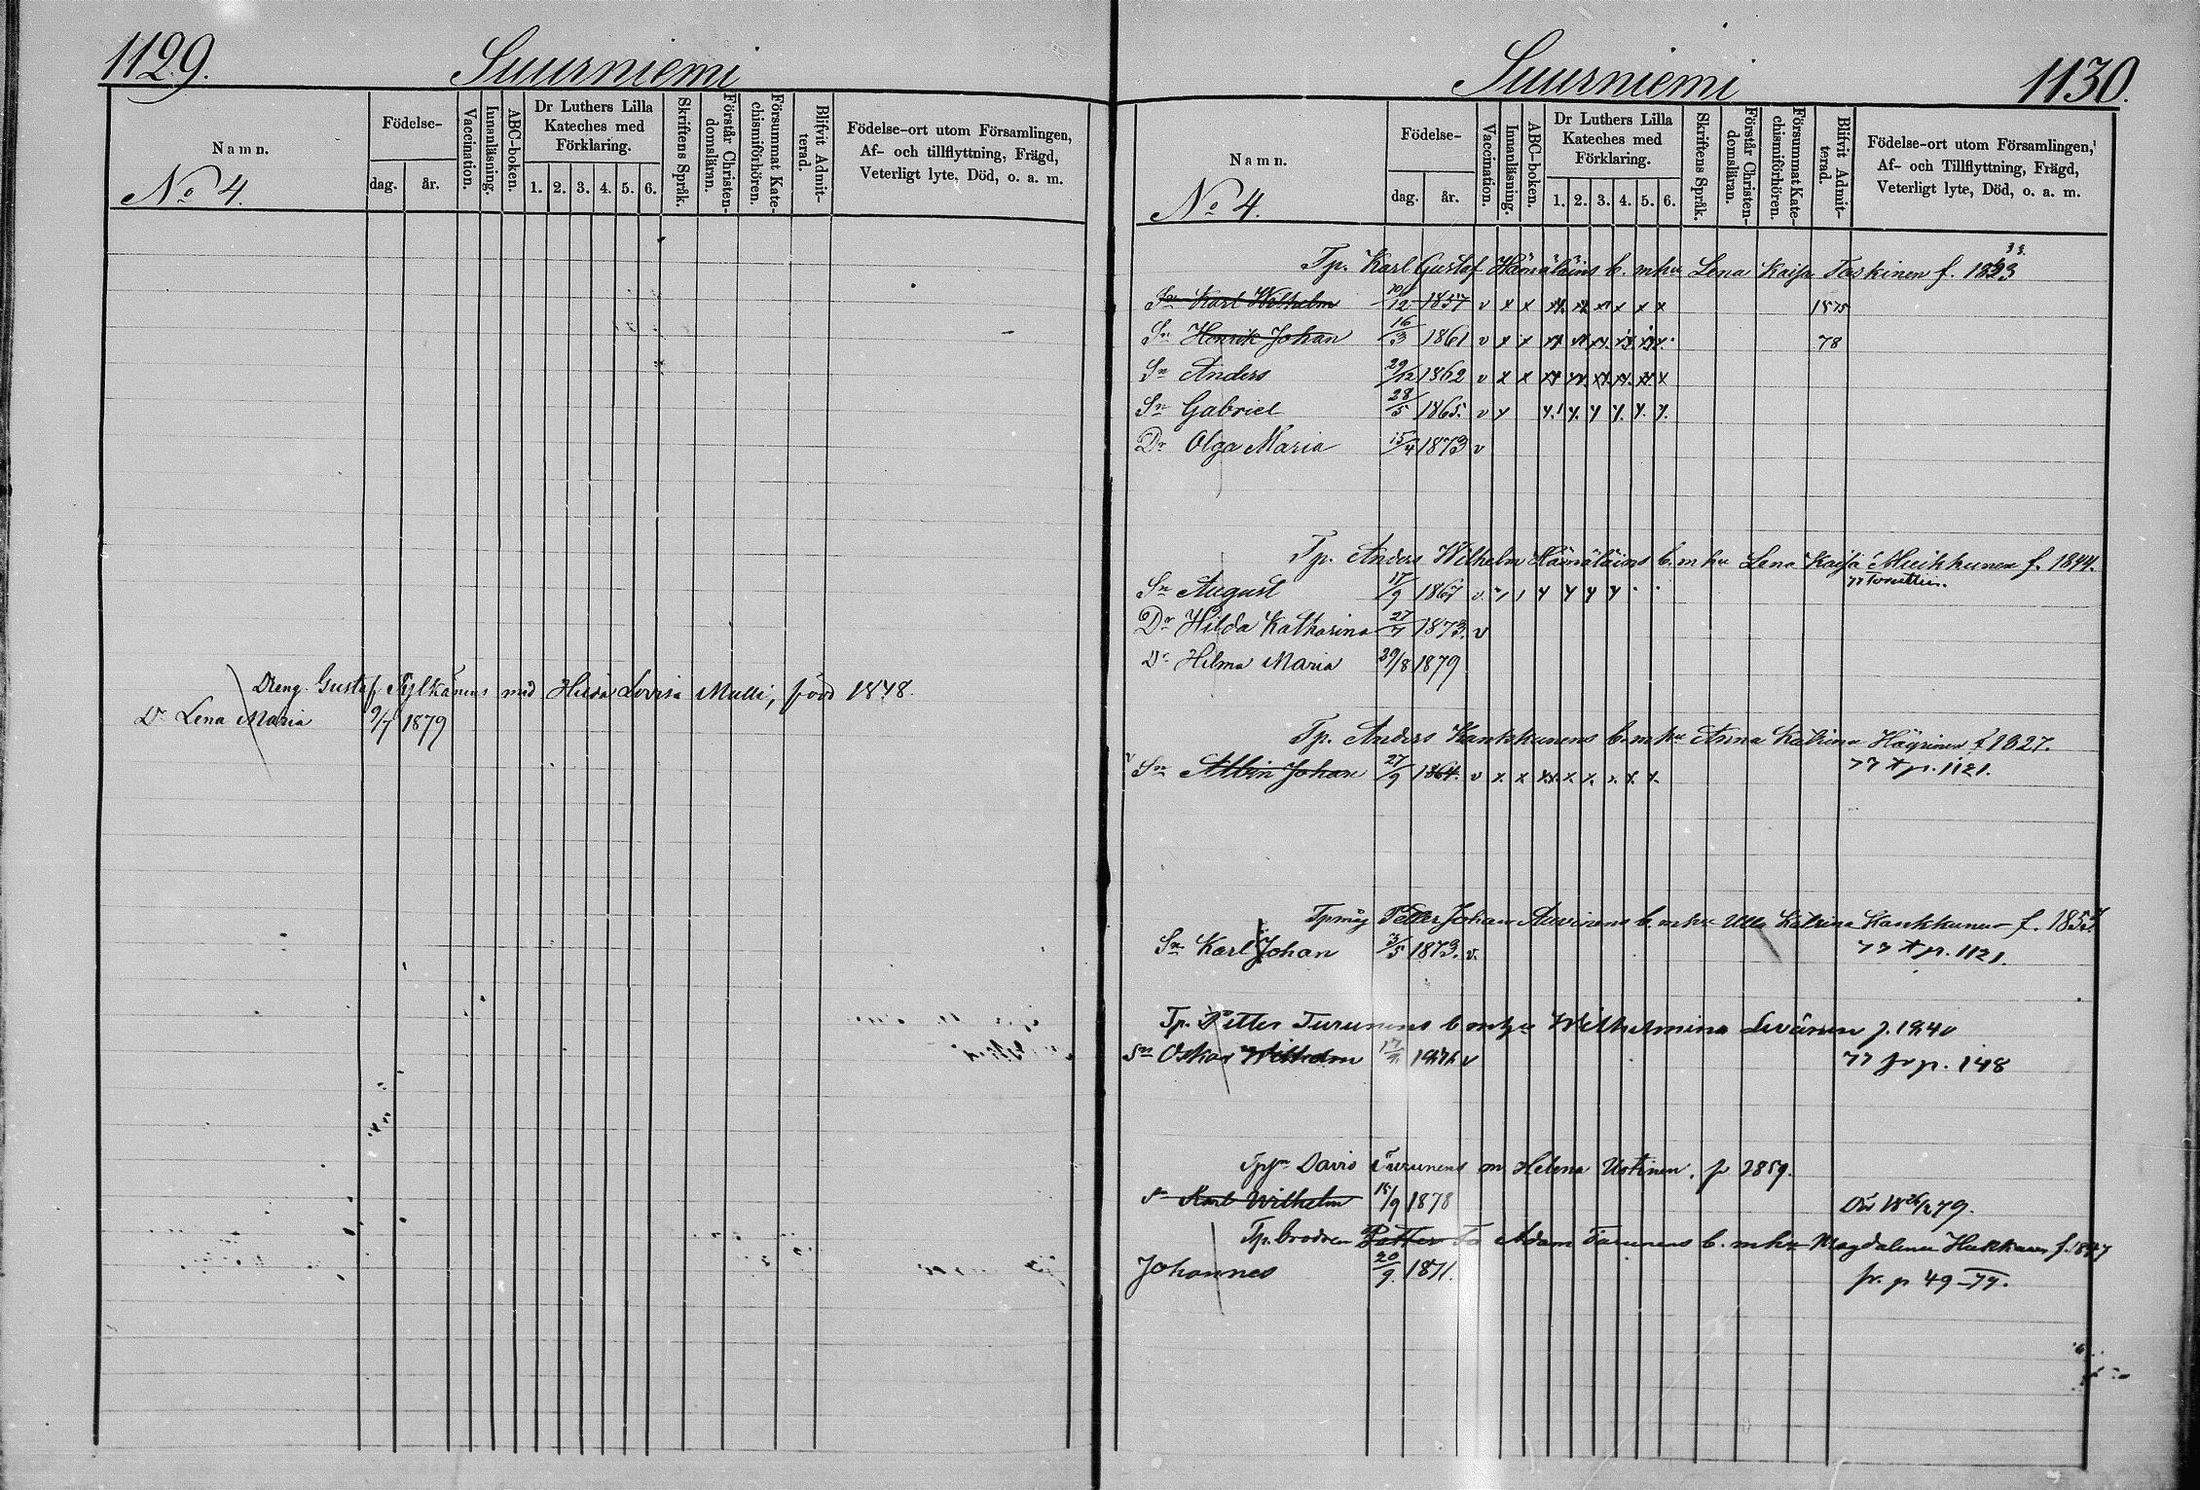 1129.
Suurniemi
Namn.
No 4.
Födelse-
dag.
år.
Vaccination.
Innanläsning.
ABC-boken.
Dr Luthers Lilla
Kateches med
Förklaring.
1. 2. 3. 4. 5. 6.
Skriftens Språk.
Förstår Christen-
domsläran.
Försummat Kate-
chismiförhören.
Blifvit Admit-
terad.
Födelse-ort utom Församlingen,
Af- och tillflyttning, Frägd,
Veterligt lyte, Död, o. a. m.
Dreng. Gustaf Pylkänens med Hilda Lovisa Mulli, född 1848.
Dr Lena Maria 9/7 1879
Suurniemi
1130.
Namn.
No 4.
Födelse-
dag.
år.
Vaccination.
Innanläsning.
ABC-boken.
Dr Luthers Lilla
Kateches med
Förklaring.
1. 2. 3. 4. 5. 6.
Skriftens Språk.
Förstår Christen-
domsläran.
Försummat Kate-
chismiförhören.
Blifvit Admit-
terad.
Födelse-ort utom Församlingen,
Af- och Tillflyttning, Frägd,
Veterligt lyte, Död, o. a. m.
Tp. Karl Gustaf Hämäläins b. m hu Lena Kaisa Taskinen f.
Sn Karl Wilhelm 10/12 1857 v x x x x x x x x 1875
Sn Henrik Johan 16/3 1861 v x x 78
Sn Anders 29/12 1862 v x x
Sn Gabriel 28/5 1865. v
Dr Olga Maria 15/4 1873 v
Tp. Anders Wilhelm Hämäläins b. m hu Lena Kaisa Miikkunen f. 1844.
Sn August 17/9 1867 v
Dr Hilda Katharina 27/7 1873. v
Dr Hilma Maria 29/8 1879
Tp. Anders Kankkunens b. m hu Anna Katrina Häyrinen f 1827.
77 p. 1121.
Sn Albin Johan 27/9 1864. v x x xx x x x x x
Petter Johan Auvinens b. m hu Ulla Katrina Kankkunen f.
Sn Karl Johan 3/5 1873. v.
77 p. 1121.
Tp. Petter Turunens b Wilhelmina Levänen f. 1840
Sn Oskar Wilhelm v
77 fr p. 148
David Turunens m Helena Ustinen. f 1859.
Sn Karl Wilhelm 15/9 1878
79.
Tp. brodren Adam Turunens b. m hu Magdalena Hukkanen f. 1847
Johannes 20/9. 1871.
fr. p 49 – 77.